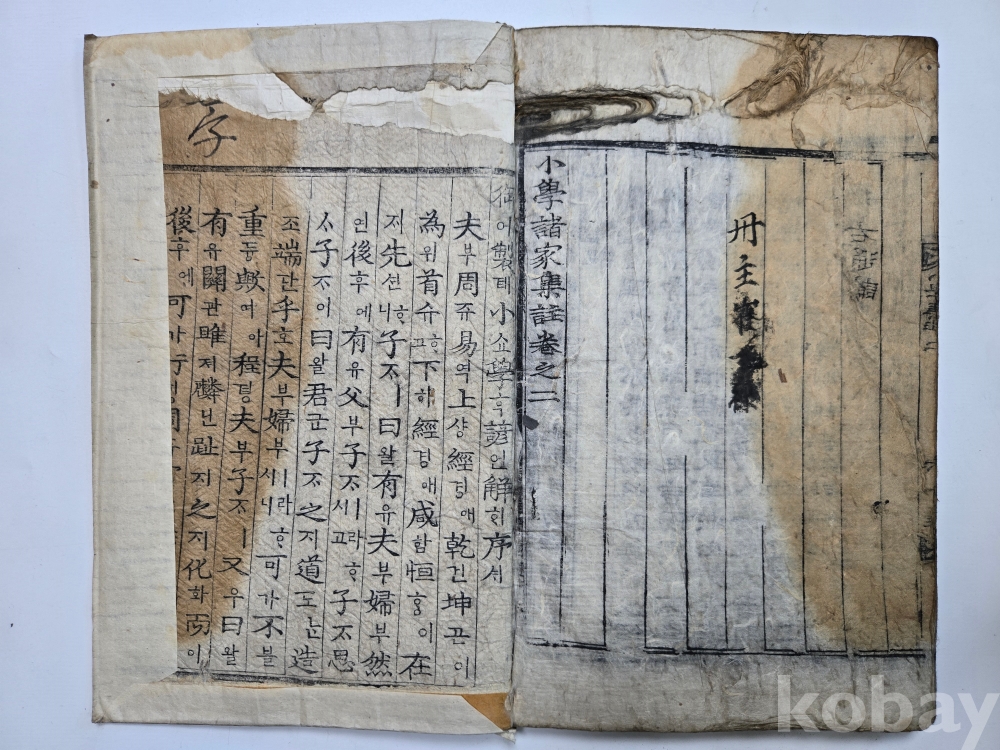 冊主崔
小學諸家集註卷之二
御어製졔小쇼學ᄒᆞᆨ諺언解ᄒᆡ序셔
夫부周쥬易역上샹經경애乾건坤곤이
為위首슈ᄒᆞ고下하經경애咸함恒ᄒᆞᆼ이在
ᄌᆡ先션ᄒᆞ니子ᄌᆞㅣ曰왈有유夫부婦부然
연後후에有유父부子ᄌᆞㅣ라ᄒᆞ시고子ᄌᆞ思
ᄉᆞ子ᄌᆞㅣ曰왈君군子ᄌᆞ之지道도ᄂᆞᆫ造
조端단乎호夫부婦부ㅣ라ᄒᆞ시니可가不불
重듕歟여아程뎡夫부子ᄌᆞㅣ又우曰왈
有유關관雎져麟닌趾지之지化화而이
後후에可가行
字
kobay